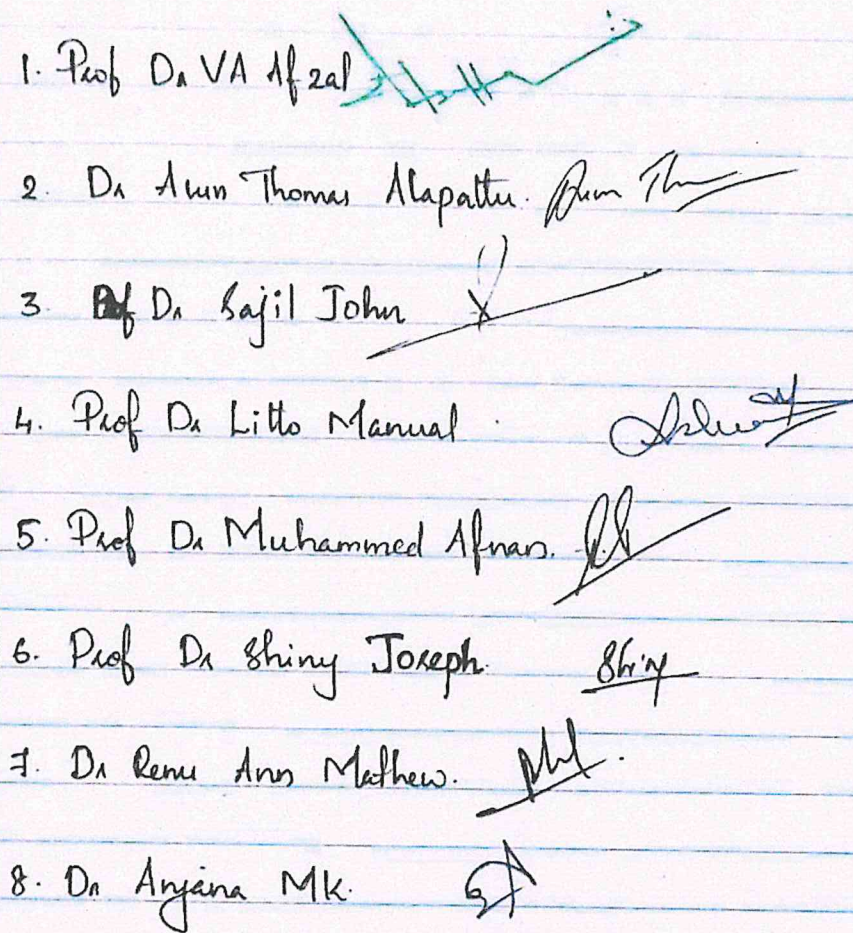 1. Prof Dr VA Afzal
2. Dr Arun Thomas Alapattu. Arun Th
3 Dr Sajil John
4. Prof Dr Litto Manual.
5. Prof Dr Muhammed Afnan.
6. Prof Dr Shiny Joseph. Shiny
7. Dr Renu Ann Mathew.
8. Dr Anjana MK.